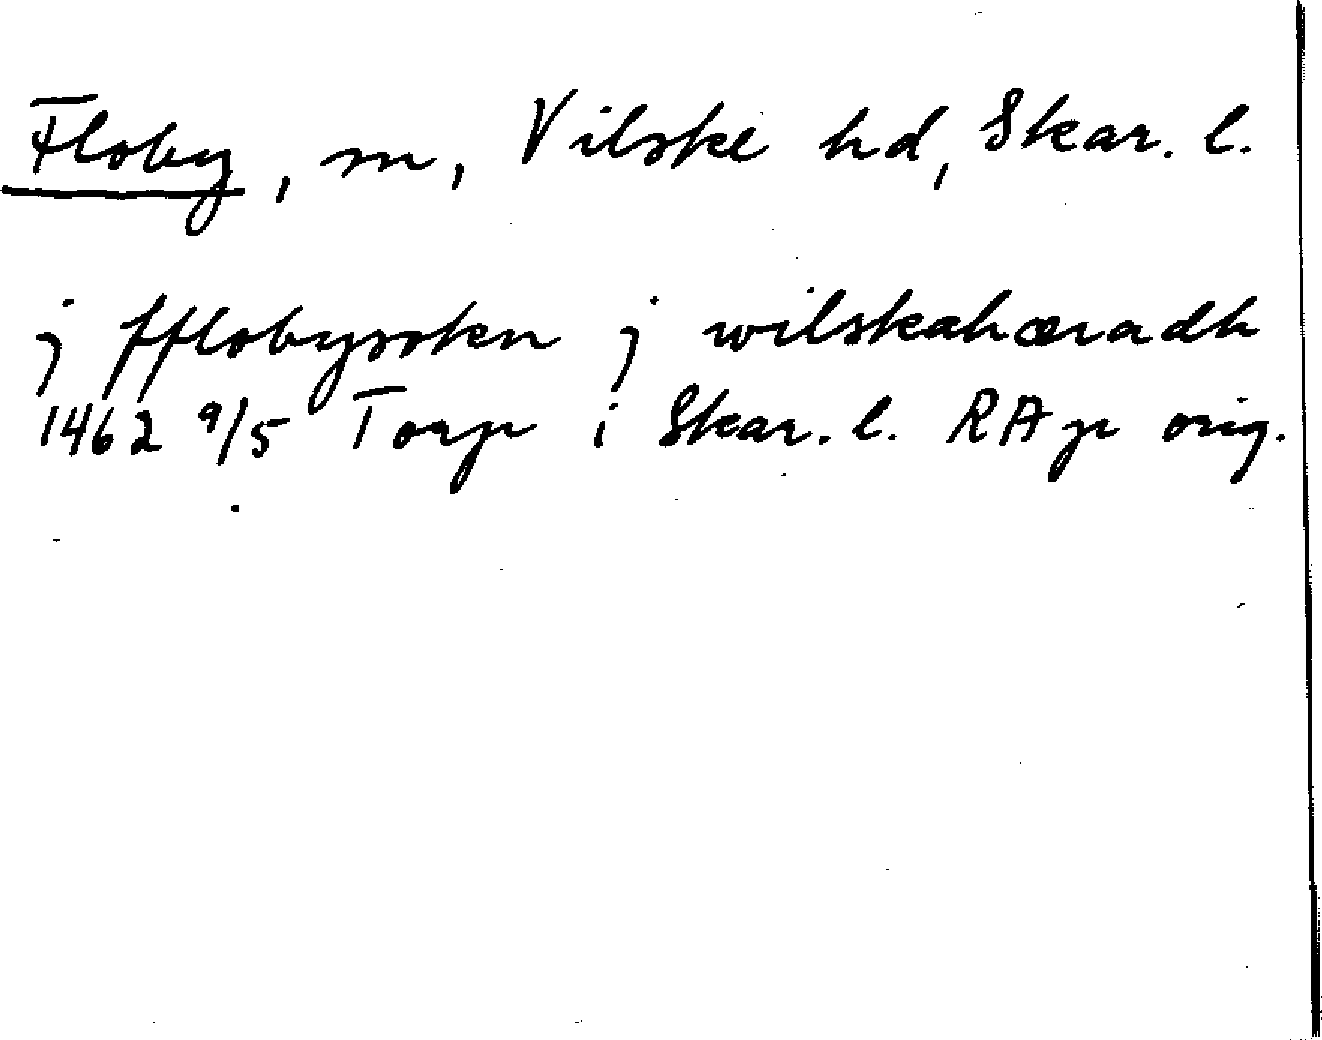 Floby, sn, Vilske hd, Skar. l.
j fflobysokn j wilskahæradh
1462 9/5 Torp i Skar. l. RAp orig.